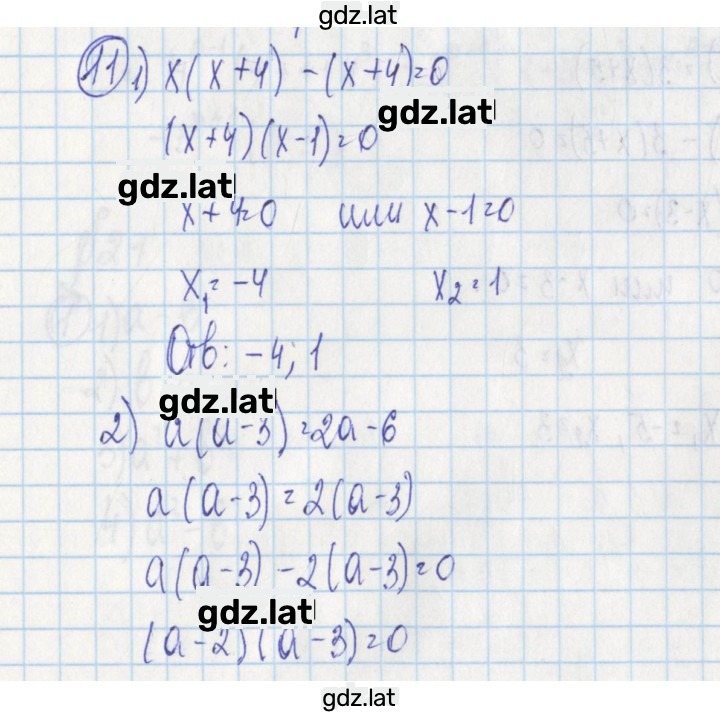 gdz.latl
11 1) x(x+4) -(x+4)=0
gdz.latl
(x+4)(x-1)=0
gdz.latl
x+4=0 или x-1=0
x₁=-4 x₂=1
Отв: -4; 1
gdz.latl
2) a(a-3)=2a-6
a(a-3)=2(a-3)
a(a-3)-2(a-3)=0
gdz.latl
(a-2)(a-3)=0
gdz.latl